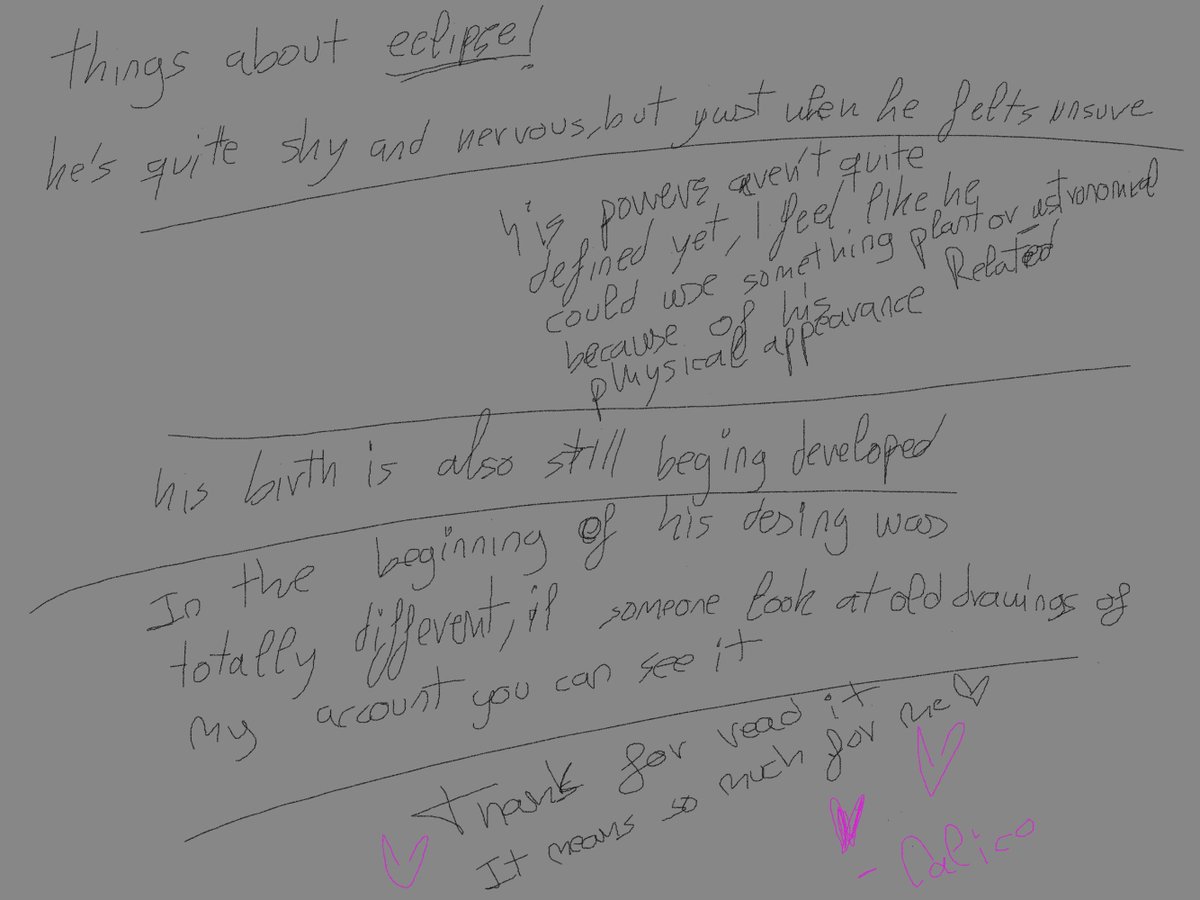 things about eclipse!
he's quite shy and nervous, but yust when he felts unsure
his powers aren't quite
defined yet, I feel like he
could use something plant or astronomical
because of his Related
physical appearance
his birth is also still beging developed
In the beginning of his desing was
totally different, if someone look at old drawings of
my account you can see it
Thank for read it
It means so much for me ♡
- Calico